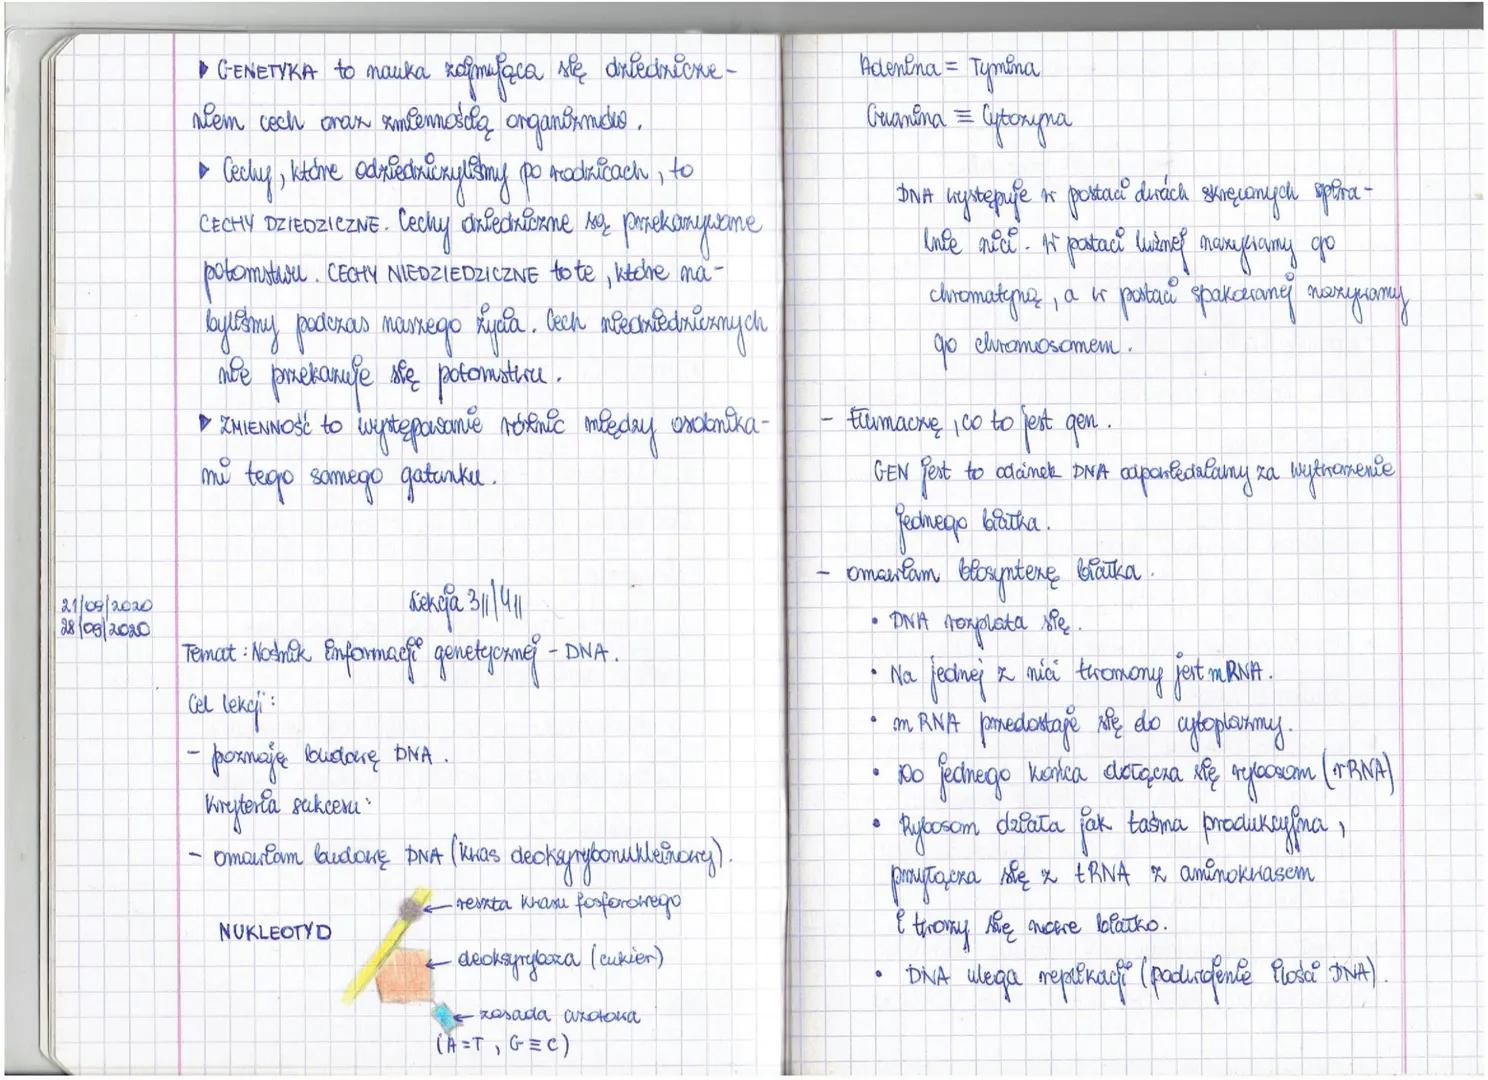 ▶ GENETYKA to nauka zajmująca się dziedzicze-
niem cech oraz zmiennością organizmów.
▶ Cechy, które odziedziczyliśmy po rodzicach, to
CECHY DZIEDZICZNE. Cechy dziedziczne są przekazywane
potomstwu. CECHY NIEDZIEDZICZNE to te, które na-
byliśmy podczas naszego życia. Cech niedziedzicznych
nie przekazuje się potomstwu.
▶ ZMIENNOŚĆ to występowanie różnic między osobnika-
mi tego samego gatunku.
21/09/2020
28/09/2020
Lekcja 3||/4||
Temat: Nośnik informacji genetycznej - DNA.
Cel lekcji:
- poznaję budowę DNA.
Kryteria sukcesu:
- omawiam budowę DNA (kwas deoksyrybonukleinowy).
NUKLEOTYD
reszta kwasu fosforowego
deoksyryboza (cukier)
zasada azotowa
(A=T, G≡C)
Adenina = Tymina
Guanina ≡ Cytozyna
DNA występuje w postaci dwóch skręconych spira-
lnie nici. W postaci luźnej nazywamy go
chromatyną, a w postaci spakowanej nazywamy
go chromosomem.
- tłumaczę, co to jest gen.
GEN jest to odcinek DNA odpowiedzialny za wytworzenie
jednego białka.
- omawiam biosyntezę białka.
• DNA rozplata się.
• Na jednej z nici tworzony jest mRNA.
• mRNA przedostaje się do cytoplazmy.
• Do jednego końca dołącza się rybosom (rRNA)
• Rybosom działa jak taśma produkcyjna,
przyłącza się z tRNA z aminokwasem
i tworzy się nowe białko.
• DNA ulega replikacji (podwojenie ilości DNA).